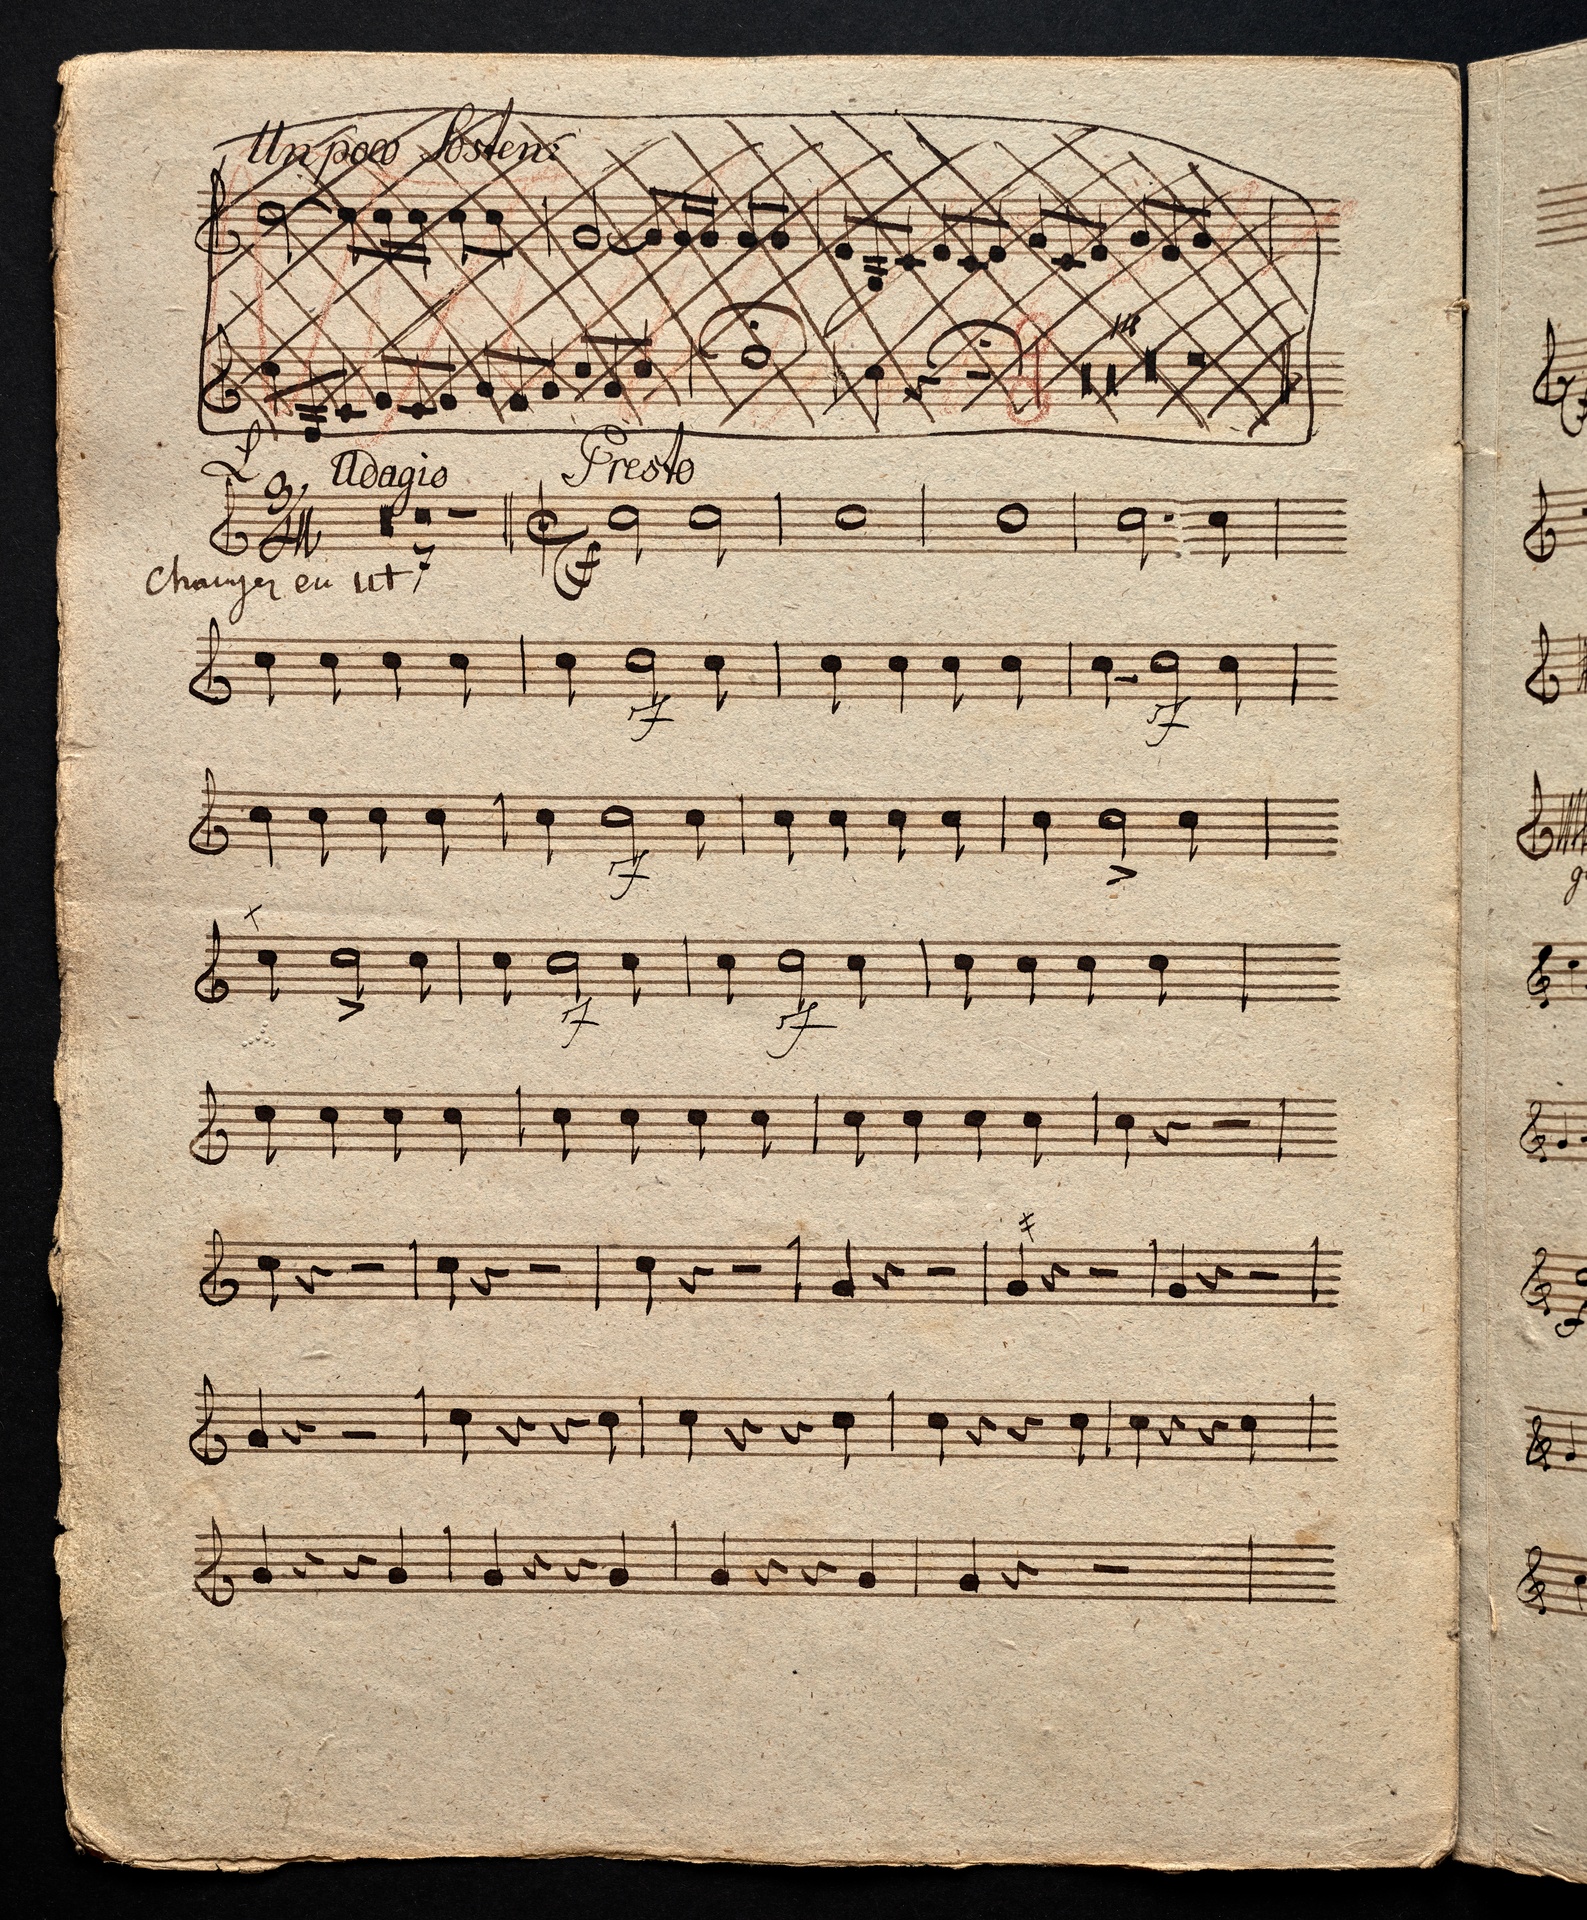 Un poco Sosten:
Adagio Presto
Changer en ut
sf sf
sf
sf sf